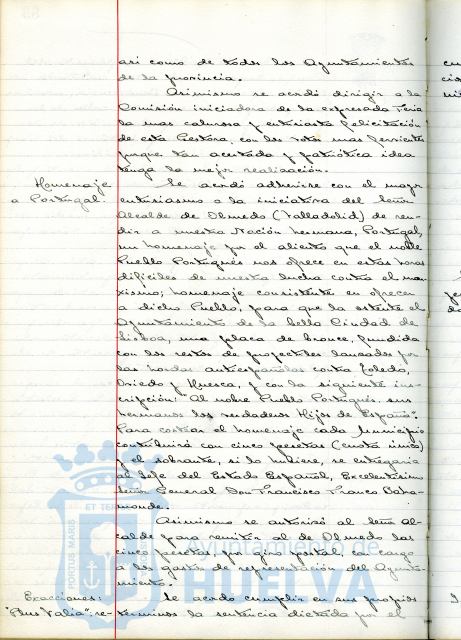 asi como de todos los Ayuntamientos
de la provincia.
Asimismo se acordó dirigir a la
Comisión iniciadora de la expresada Feria
la mas calurosa y entusiasta felicitación
de esta Gestora, con los votos mas fervientes
porque tan acertada y patriótica idea
tenga la mejor realización.
Homenaje
a Portugal
Se acordó adherirse con el mayor
entusiasmo a la iniciativa del Señor
Alcalde de Olmedo (Valladolid) de ren-
dir a nuestra Nación hermana, Portugal,
un homenaje por el aliento que el noble
Pueblo Portugués nos ofrece en estas horas
difíciles de nuestra lucha contra el mar-
xismo; homenaje consistente en ofrecer
a dicho Pueblo, para que la ostente el
Ayuntamiento de la bella Ciudad de
Lisboa, una placa de bronce, fundida
con los restos de proyectiles lanzados por
las hordas antiespañolas contra Toledo,
Oviedo y Huesca, y con la siguiente ins-
cripción: "Al noble Pueblo Portugués, sus
hermanos los verdaderos Hijos de España".
Para costear el homenaje cada Municipio
contribuirá con cinco pesetas (cuota única)
y el sobrante, si lo hubiere, se entregaría
al Jefe del Estado Español, Excelentísimo
Señor General Don Francisco Franco Baha-
monde.
Asimismo se autorizó al Señor Al-
calde para remitir al de Olmedo las
cinco pesetas, por giro postal, con cargo
a los gastos de representación del Ayunta-
miento.
Exacciones:
"Plus Valia": re-
Se acordó cumplir en sus propios
terminos la sentencia dictada por el
PORTUS MARIS ET TER
Ayuntamiento de
HUELVA